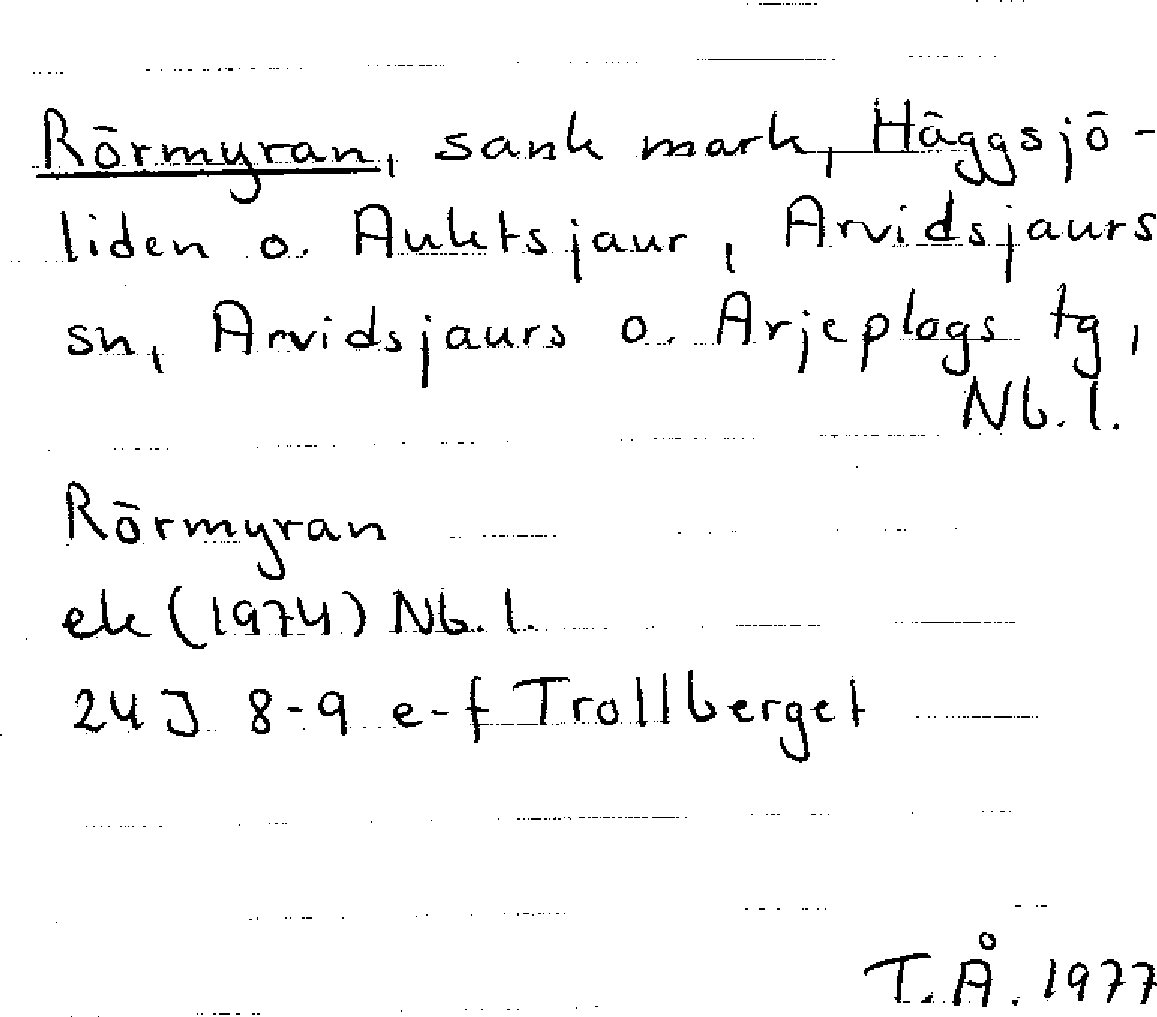 Rörmyran, sank mark, Häggsjö-
liden o. Auktsjaur, Arvidsjaurs
sn, Arvidsjaurs o. Arjeplogs tg,
Nb. l.
Rörmyran
ek (1974) Nb. l.
24J 8-9 e-f Trollberget
T. Å. 1977